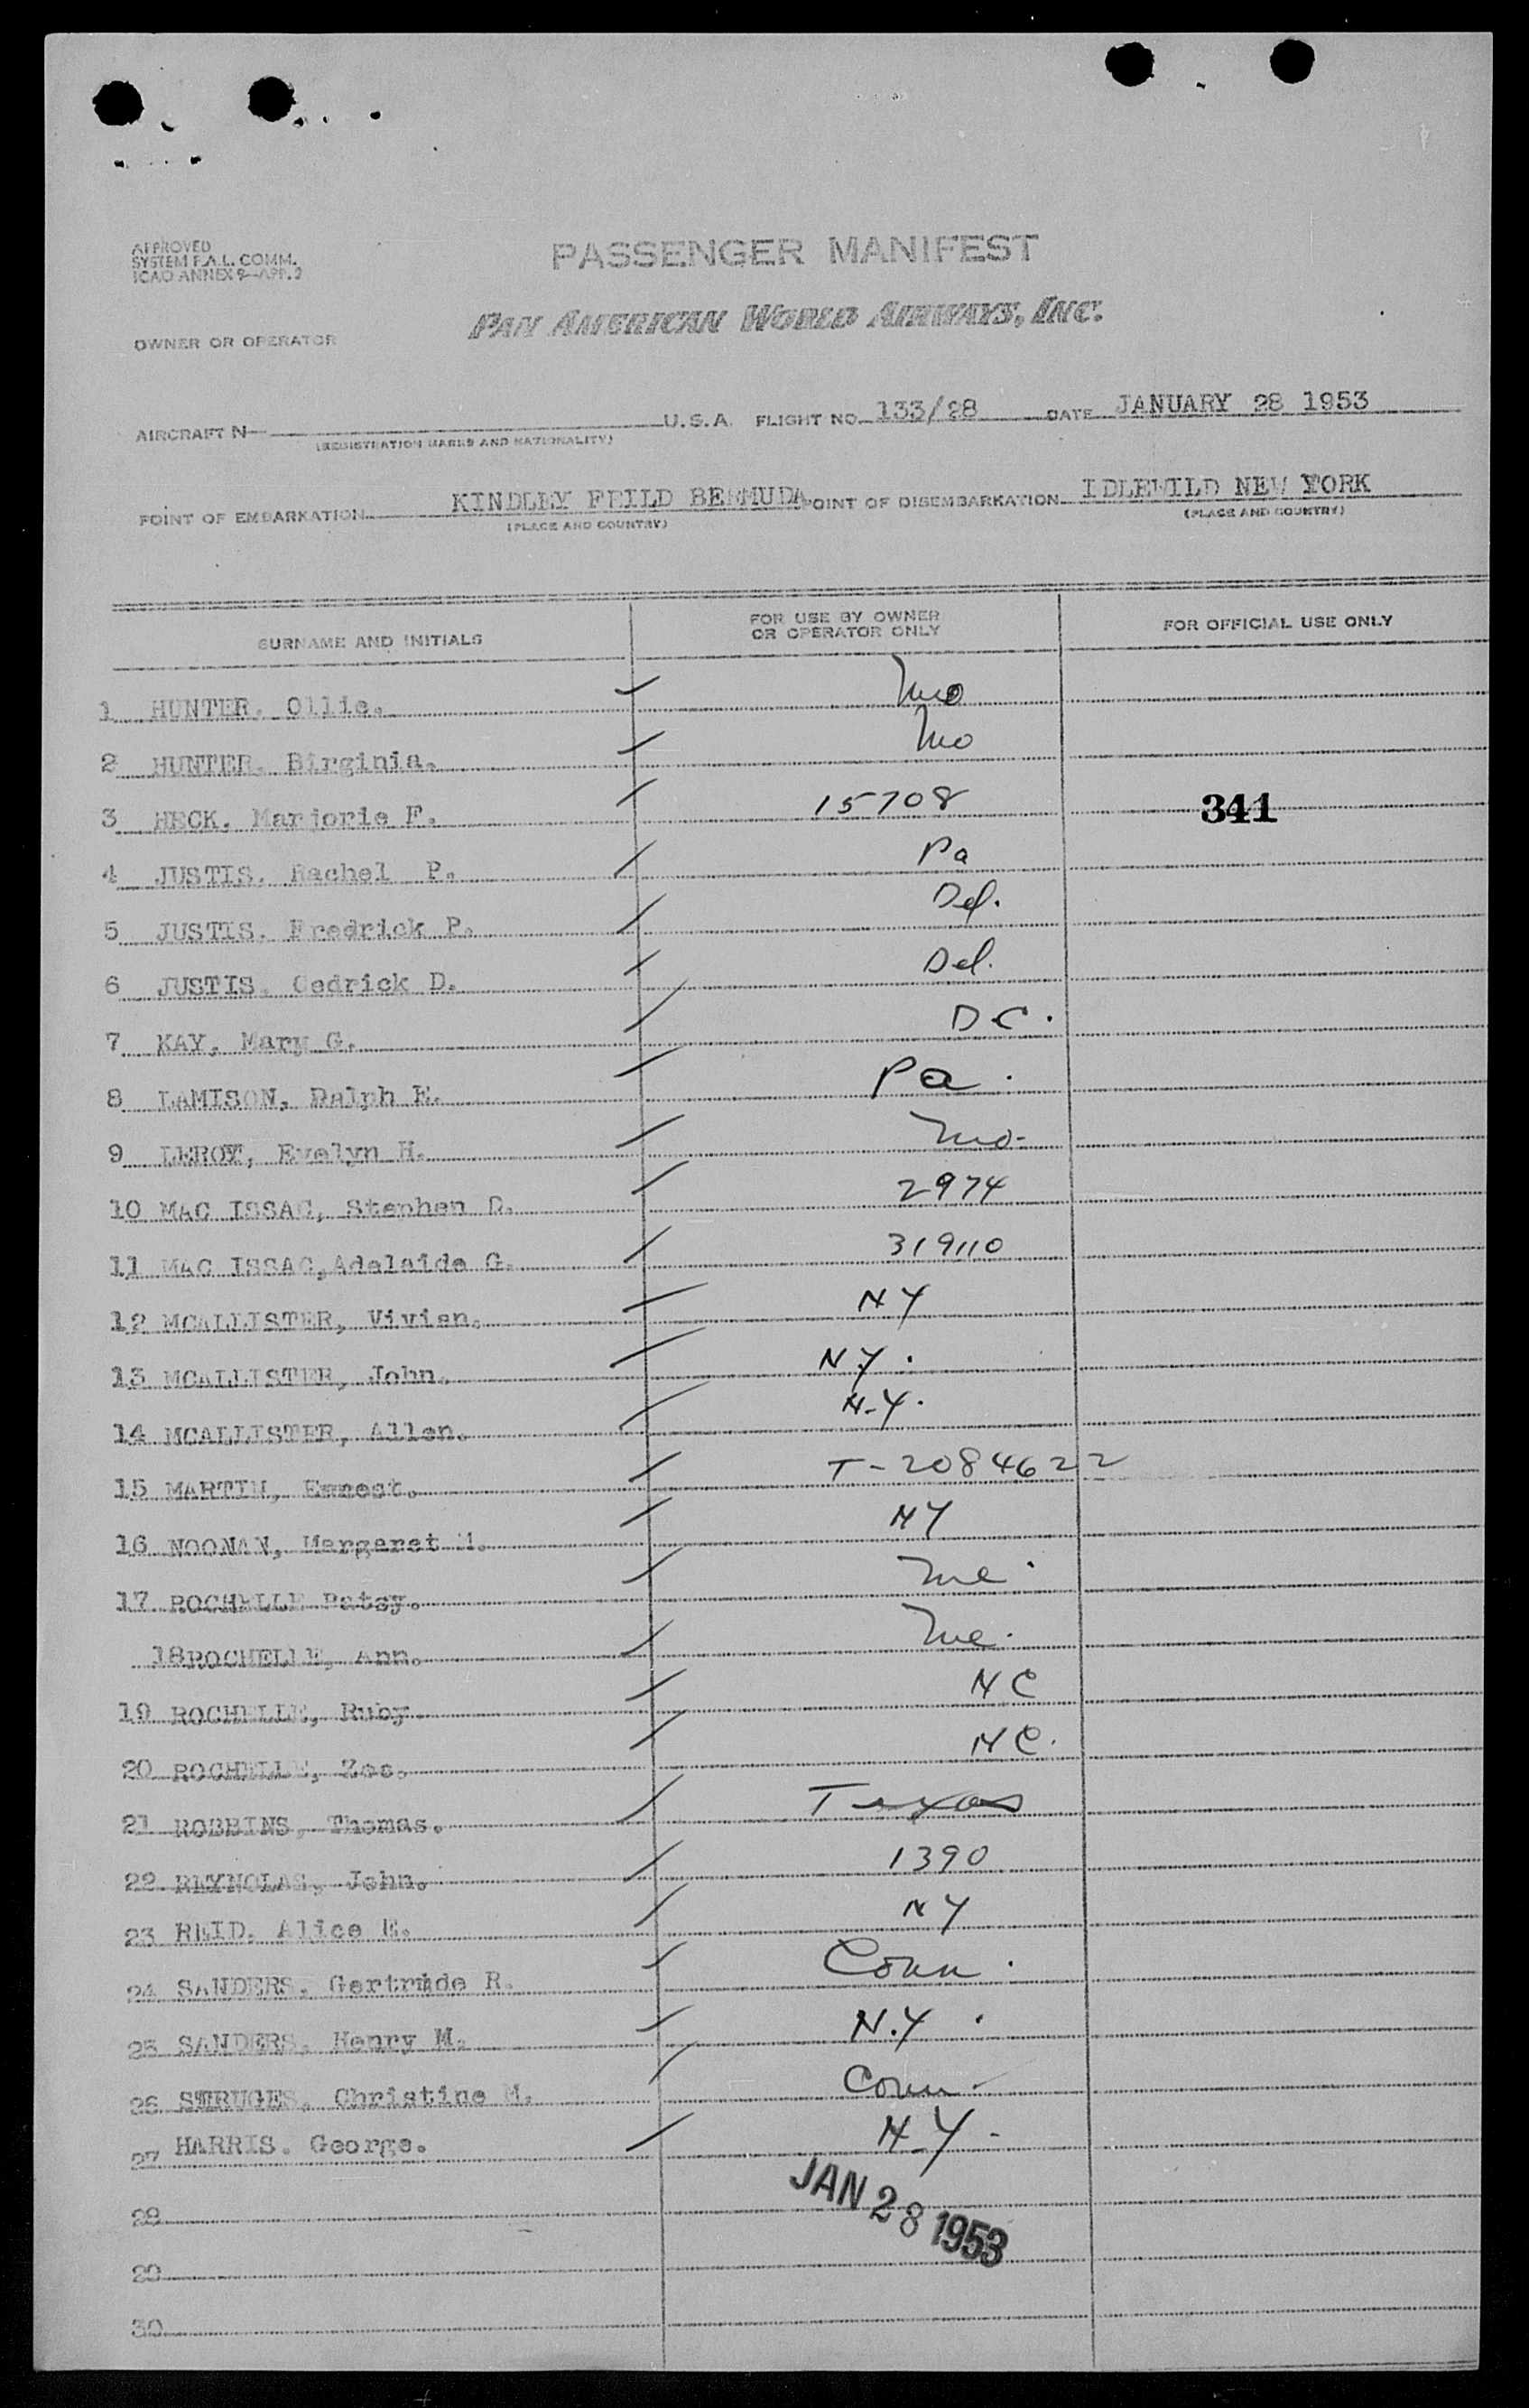 APPROVED
SYSTEM F.A.L. COMM.
ICAO ANNEX 9—APP. 2
PASSENGER MANIFEST
OWNER OR OPERATOR PAN AMERICAN WORLD AIRWAYS, INC.
AIRCRAFT N— U.S.A. FLIGHT NO. 133/28 DATE JANUARY 28 1953
(REGISTRATION MARKS AND NATIONALITY)
POINT OF EMBARKATION KINDLEY FEILD BERMUDA POINT OF DISEMBARKATION IDLEWILD NEW YORK
(PLACE AND COUNTRY) (PLACE AND COUNTRY)
SURNAME AND INITIALS FOR USE BY OWNER OR OPERATOR ONLY FOR OFFICIAL USE ONLY
1 HUNTER. Ollie. Mo
2 HUNTER. Birginia. Mo
3 HECK. Marjorie F. 15708 341
4 JUSTIS. Rachel P. Pa
5 JUSTIS. Fredrick P. Del.
6 JUSTIS. Cedrick D. Del.
7 KAY. Mary G. DC.
8 LAMISON, Ralph E. Pa.
9 LEROY, Evelyn H. Mo-
10 MAC ISSAC, Stephen D. 2974
11 MAC ISSAC, Adelaide G. 319110
12 MCALLISTER, Vivien. NY
13 MCALLISTER, John. N.Y.
14 MCALLISTER, Allen. N-Y.
15 MARTIN, Ernest. T-2084622
16 NOONAN, Margaret M. NY
17 ROCHELLE Patsy. Me.
18 ROCHELLE, Ann. Me.
19 ROCHELLE, Ruby. NC
20 ROCHELLE, Zoe. NC.
21 ROBBINS, Thomas. Texas
22 REYNOLAS, John. 1390
23 REID. Alice E. NY
24 SANDERS. Gertrude R. Conn.
25 SANDERS. Henry M. N.Y.
26 STRUGES. Christine M. Conn-
27 HARRIS. George. N.Y-
28 JAN 28 1953
29
30